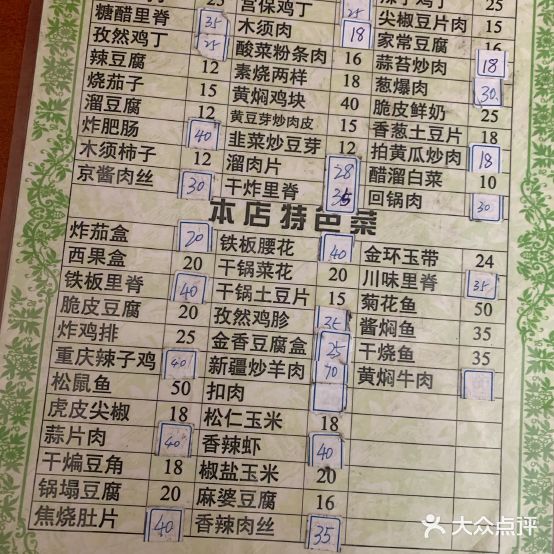 25 宫保鸡丁 25
糖醋里脊 35 木须肉 18 尖椒豆片肉 15
孜然鸡丁 25 酸菜粉条肉 16 家常豆腐 16
辣豆腐 12 素烧两样 18 蒜苔炒肉 18
烧茄子 15 黄焖鸡块 40 葱爆肉 30
溜豆腐 12 黄豆芽炒肉皮 15 脆皮鲜奶 25
炸肥肠 40 韭菜炒豆芽 12 香葱土豆片 18
木须柿子 12 溜肉片 28 拍黄瓜炒肉 18
京酱肉丝 30 干炸里脊 35 醋溜白菜 10
回锅肉 30
本店特色菜
炸茄盒 20 铁板腰花 40 金环玉带 24
西果盒 20 干锅菜花 20 川味里脊 35
铁板里脊 40 干锅土豆片 15 菊花鱼 50
脆皮豆腐 20 孜然鸡胗 25 酱焖鱼 35
炸鸡排 25 金香豆腐盒 25 干烧鱼 35
重庆辣子鸡 40 新疆炒羊肉 70 黄焖牛肉
松鼠鱼 50 扣肉
虎皮尖椒 18 松仁玉米 18
蒜片肉 40 香辣虾 40
干煸豆角 18 椒盐玉米 20
锅塌豆腐 20 麻婆豆腐 16
焦烧肚片 40 香辣肉丝 35
大众点评